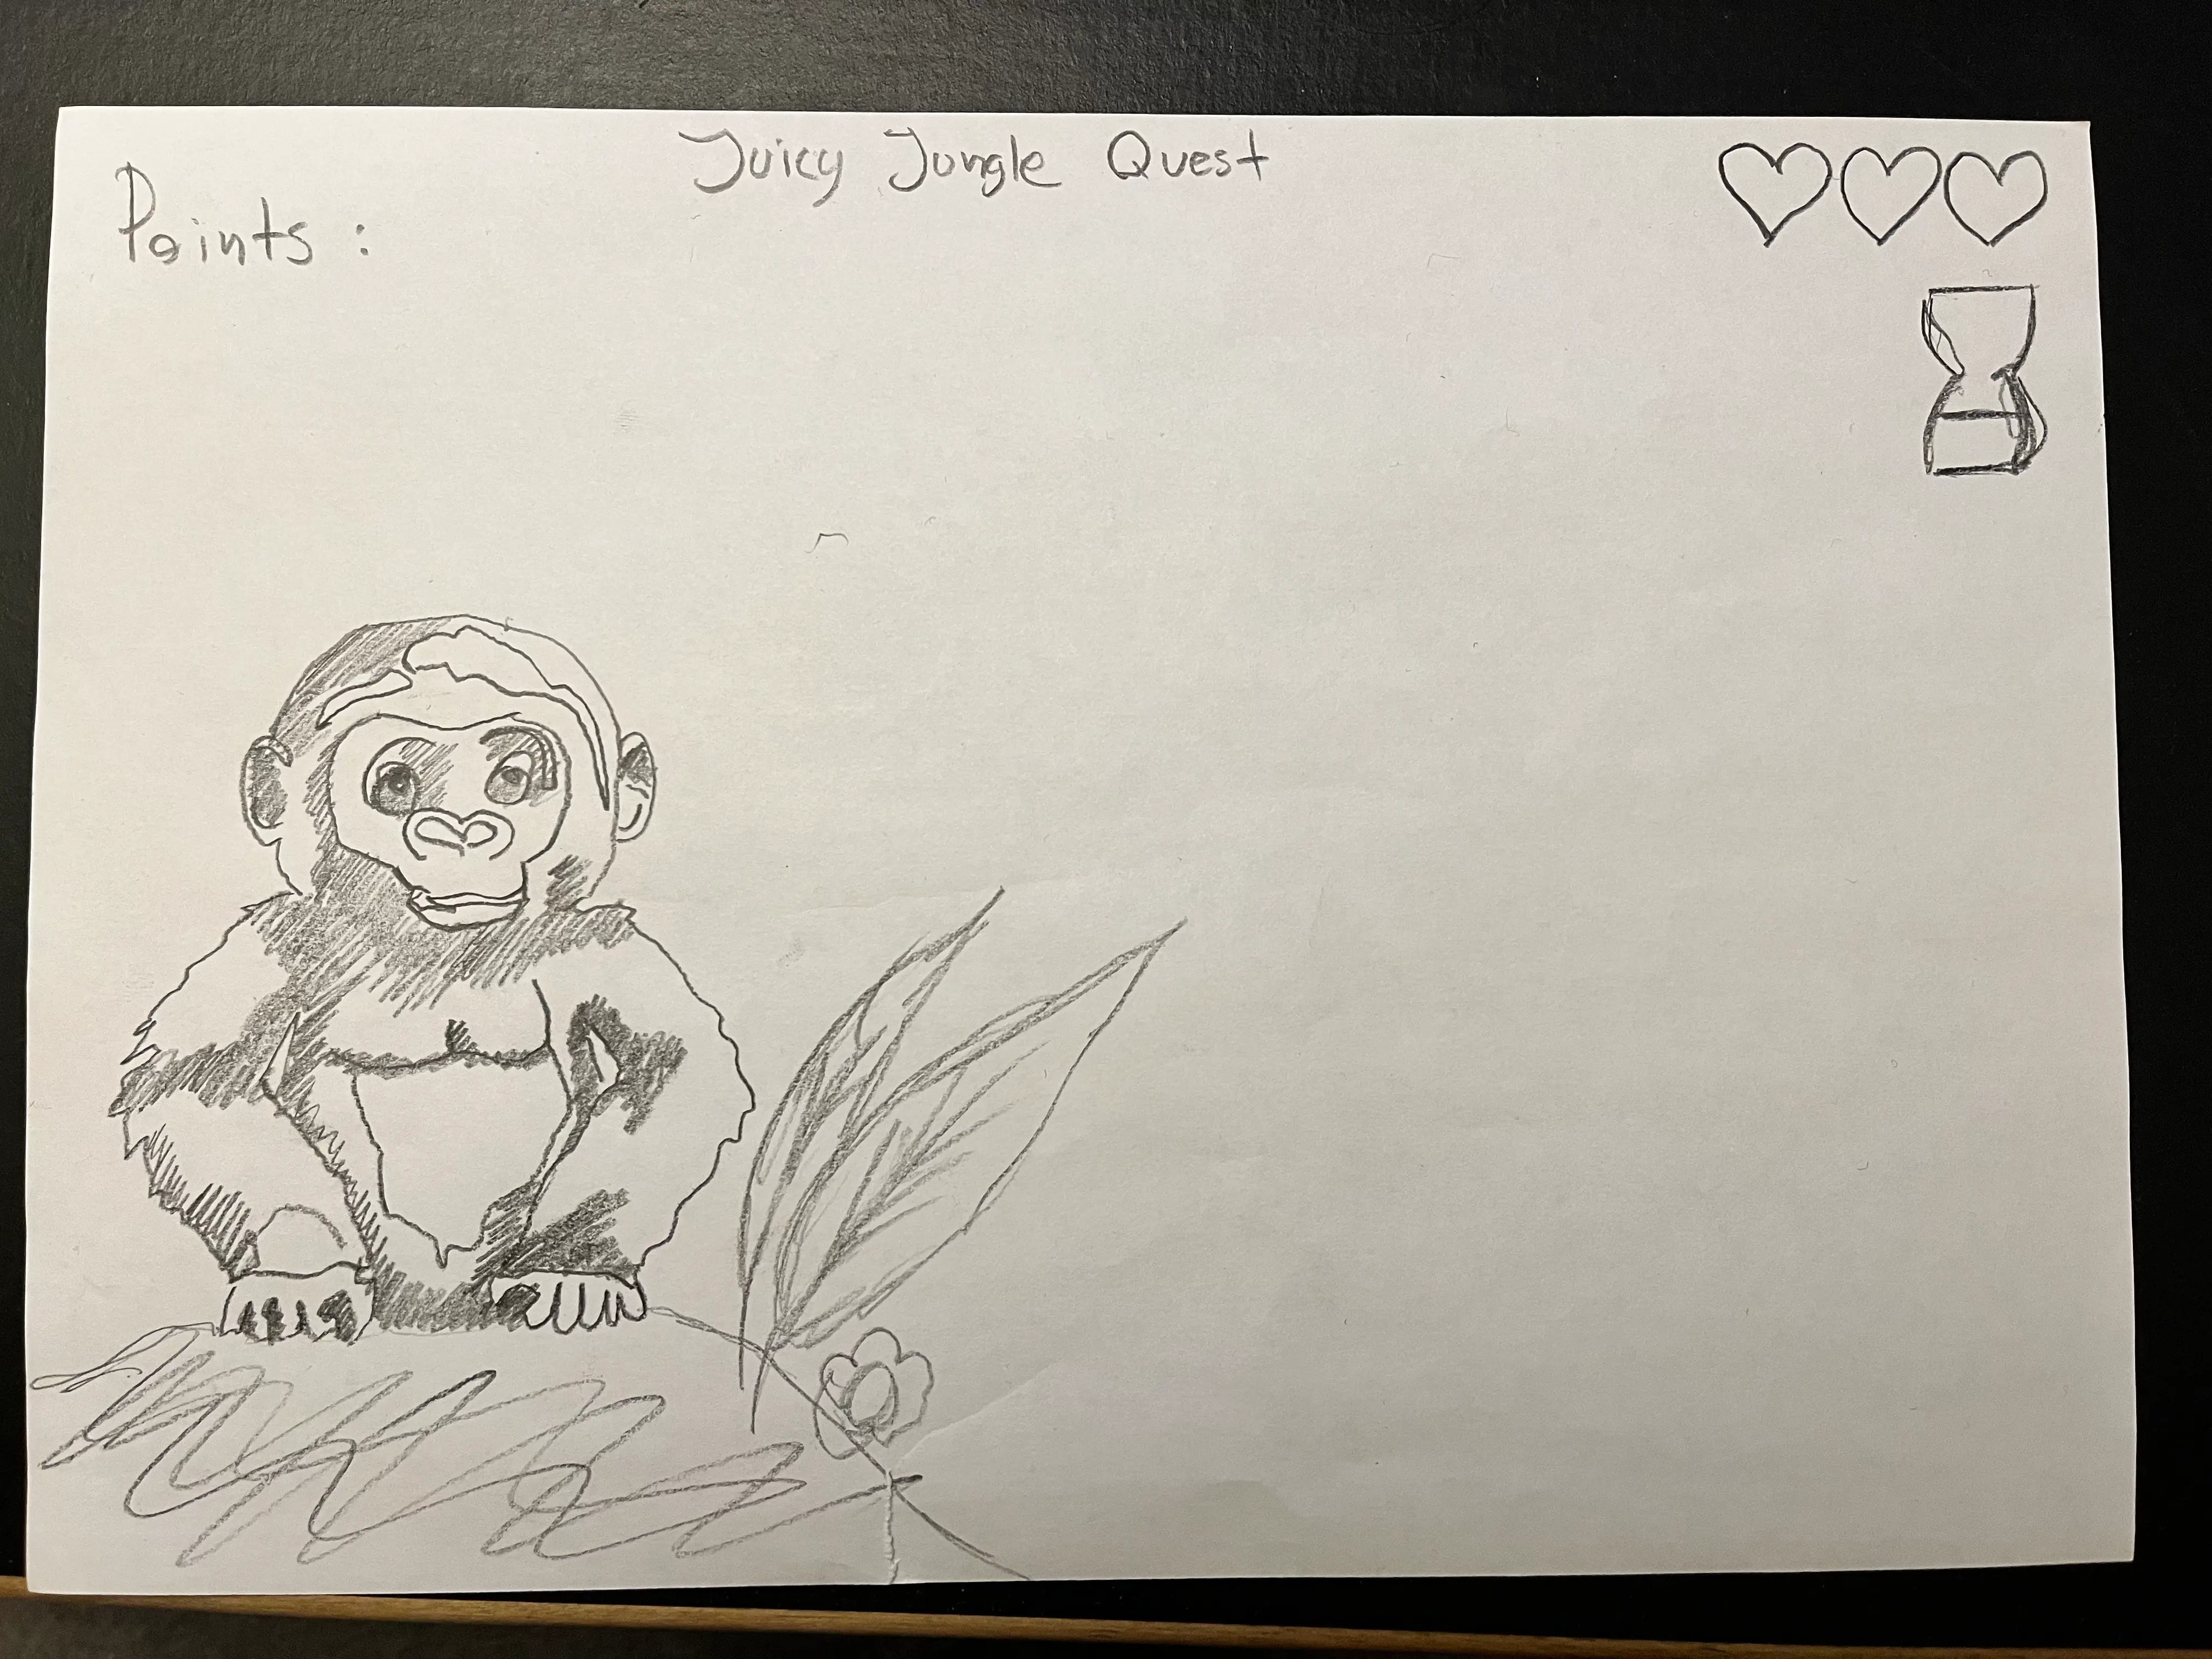 Juicy Jungle Quest
Points :